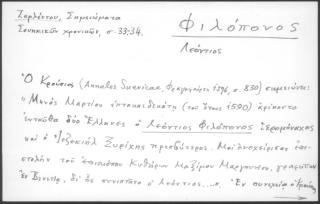 Ζαρλέντου, Σημειώματα
Σουηβικῶν χρονικῶν, σ. 33-34.
Φιλόπονος
Λεόντιος
Ὁ Κρούσιος (Annales Suevicae, Φραγκφούρτη 1596, σ. 830) σημειώνει:
"Μηνὸς Μαρτίου ἐννεακαιδεκάτῃ (τοῦ ἔτους 1590) ἀφίκοντο
ἐνταῦθα δύο Ἕλληνες ὁ Λεόντιος Φιλόπονος ἱερομόναχος
καὶ ὁ Ἰεζεκιὴλ Ξυρίχης πρεσβύτερος. Μοὶ ἐνεχείρισαν ἐπι-
στολὴν τοῦ ἐπισκόπου Κυθήρων Μαξίμου Μαργουνίου, γραφεῖσαν
ἐν Βενετίᾳ, δι' ἧς συνιστᾶτο ὁ Λεόντιος...". Ἐν συνεχείᾳ ὁ Κρούσιος